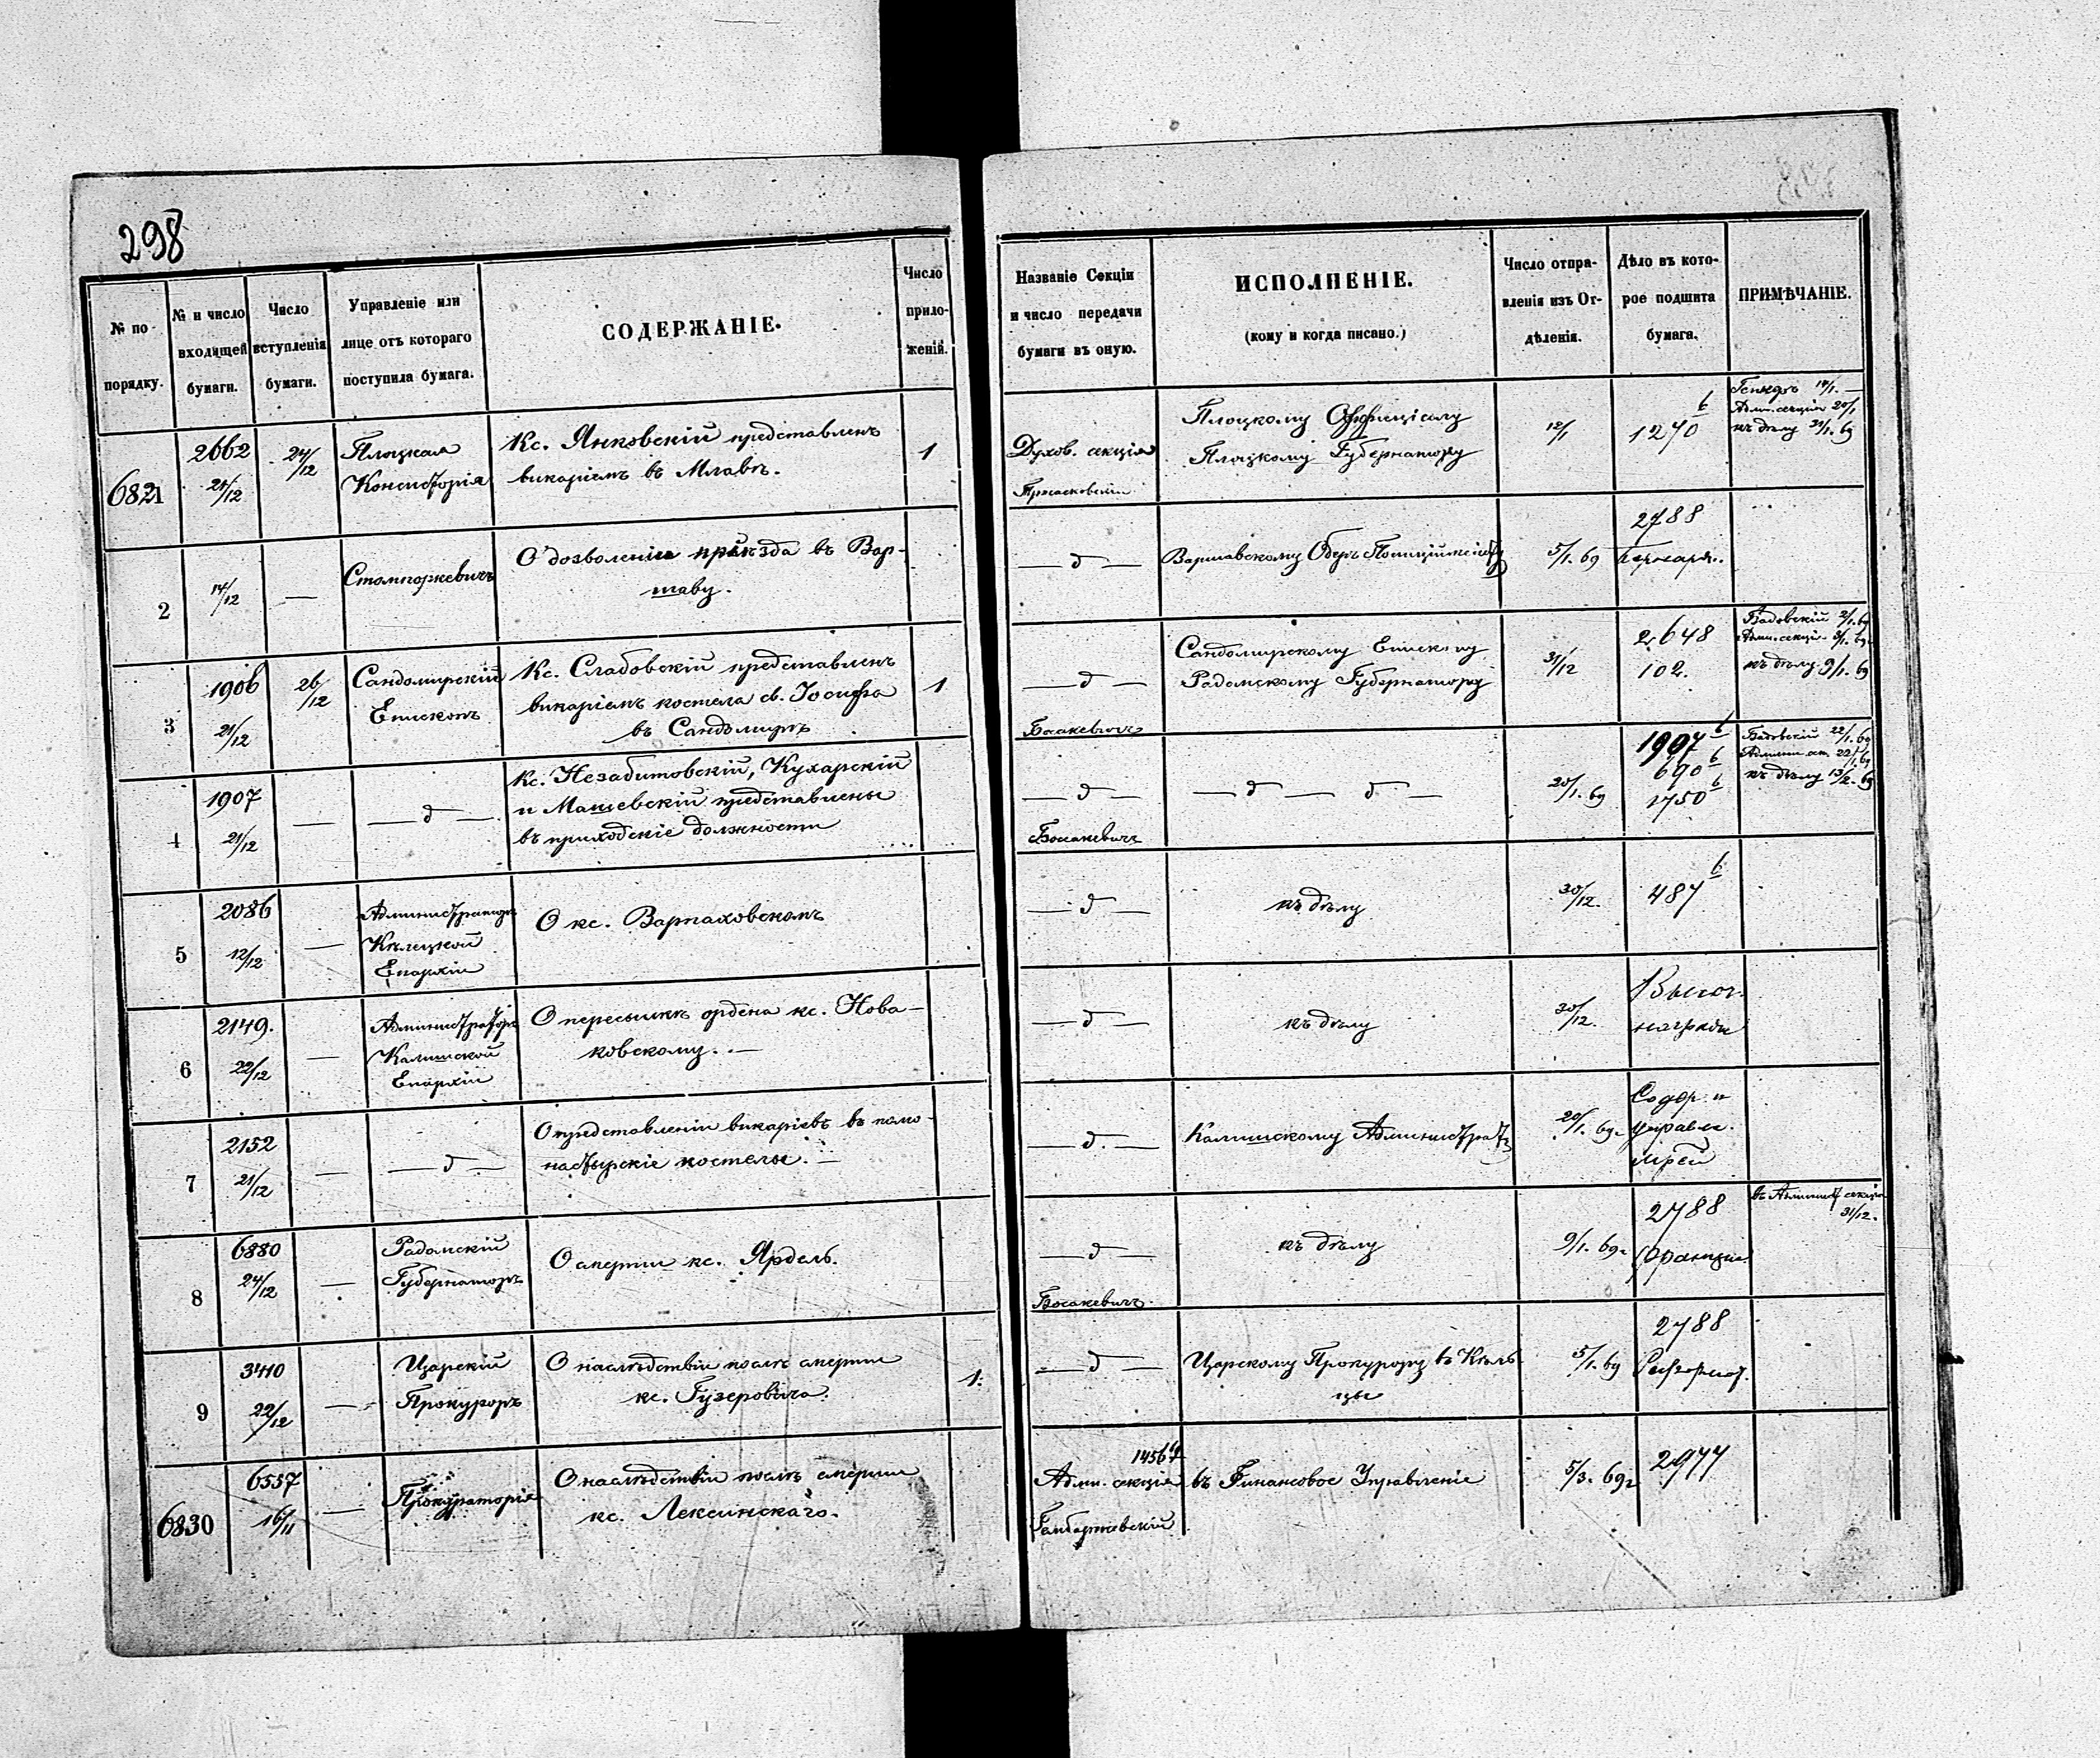 298
№ по-
порядку.
№ и число
входящей
бумаги.
Число
вступленія
бумаги.
Управленіе или
лице отъ котораго
поступила бумага.
СОДЕРЖАНІЕ.
Число
прило-
женій.
Названіе Секціи
и число передачи
бумаги въ оную.
ИСПОЛНЕНІЕ.
(кому и когда писано.)
Число отпра-
вленія изъ От-
дѣленія.
Дѣло въ кото-
рое подшита
бумага.
ПРИМѢЧАНІЕ.
6821
2662
21/12
24/12
Плоцкая
Консисторія
Кс. Янковскій представленъ
викаріемъ въ Млавѣ.
1
Духов. секція
Плоцкому Оффиціалу
Плоцкому Губернатору
12/1
6
1270
Адм. секція 20/1
къ дѣлу 21/1. 69
2
14/12
—
Стомпоркевичъ
О дозволеніи пріѣзда въ Вар-
шаву.
— д —
Варшавскому Оберъ Полиціймейстеру
5/1. 69
2788
3
1906
21/12
26/12
Сандомирскій
Епископъ
Кс. Слабовскій представленъ
викаріемъ костела св. Іосифа
въ Сандомирѣ
1
— д —
Босакевичъ
Сандомирскому Епископу
Радомскому Губернатору
31/12
2648
102.
Бадовскій 2/1. 69
Адм. секція 3/1. 69
къ дѣлу 9/1. 69
4
1907
21/12
—
— д —
Кс. Незабитовскій, Кухарскій
и Машевскій представлены
въ приходскіе должности
— д —
Босакевичъ
— д — д —
20/1. 69
1907 6
690 6
1750 6
Бадовскій 22/1. 69
къ дѣлу 13/2. 69
5
2086
12/12
—
Администраторъ
Кѣлецкой
Епархіи
О кс. Варпаховскомъ
— д —
къ дѣлу
30/12.
6
487
6
2149.
22/12
—
Администраторъ
Калишской
Епархіи
О пересылкѣ ордена кс. Нова-
ковскому. —
— д —
къ дѣлу
30/12.
Высоч.
награды
7
2152
21/12
—
— д —
О представленіи викаріевъ въ мона-
настырскіе костелы. —
— д —
Калишскому Администрат.
20/1. 69г
Содер. и
управл.
8
6880
24/12
—
Радомскій
Губернаторъ
О смерти кс. Ярдель.
— д —
Босакевичъ
къ дѣлу
9/1. 69г
2788
Францк.
въ Админист секцію
31/12.
9
3410
22/12
—
Царскій
Прокуроръ
О наслѣдствіи послѣ смерти
кс. Гузеровича.
1.
— д —
Царскому Прокурору въ Кѣль-
цы
5/1. 69
2788
Реформат.
6830
6557
16/11
—
Прокураторія
О наслѣдствіи послѣ смерти
кс. Лексинскаго.
Адми. секція
въ Финансовое Управленіе
5/3. 69г
2977